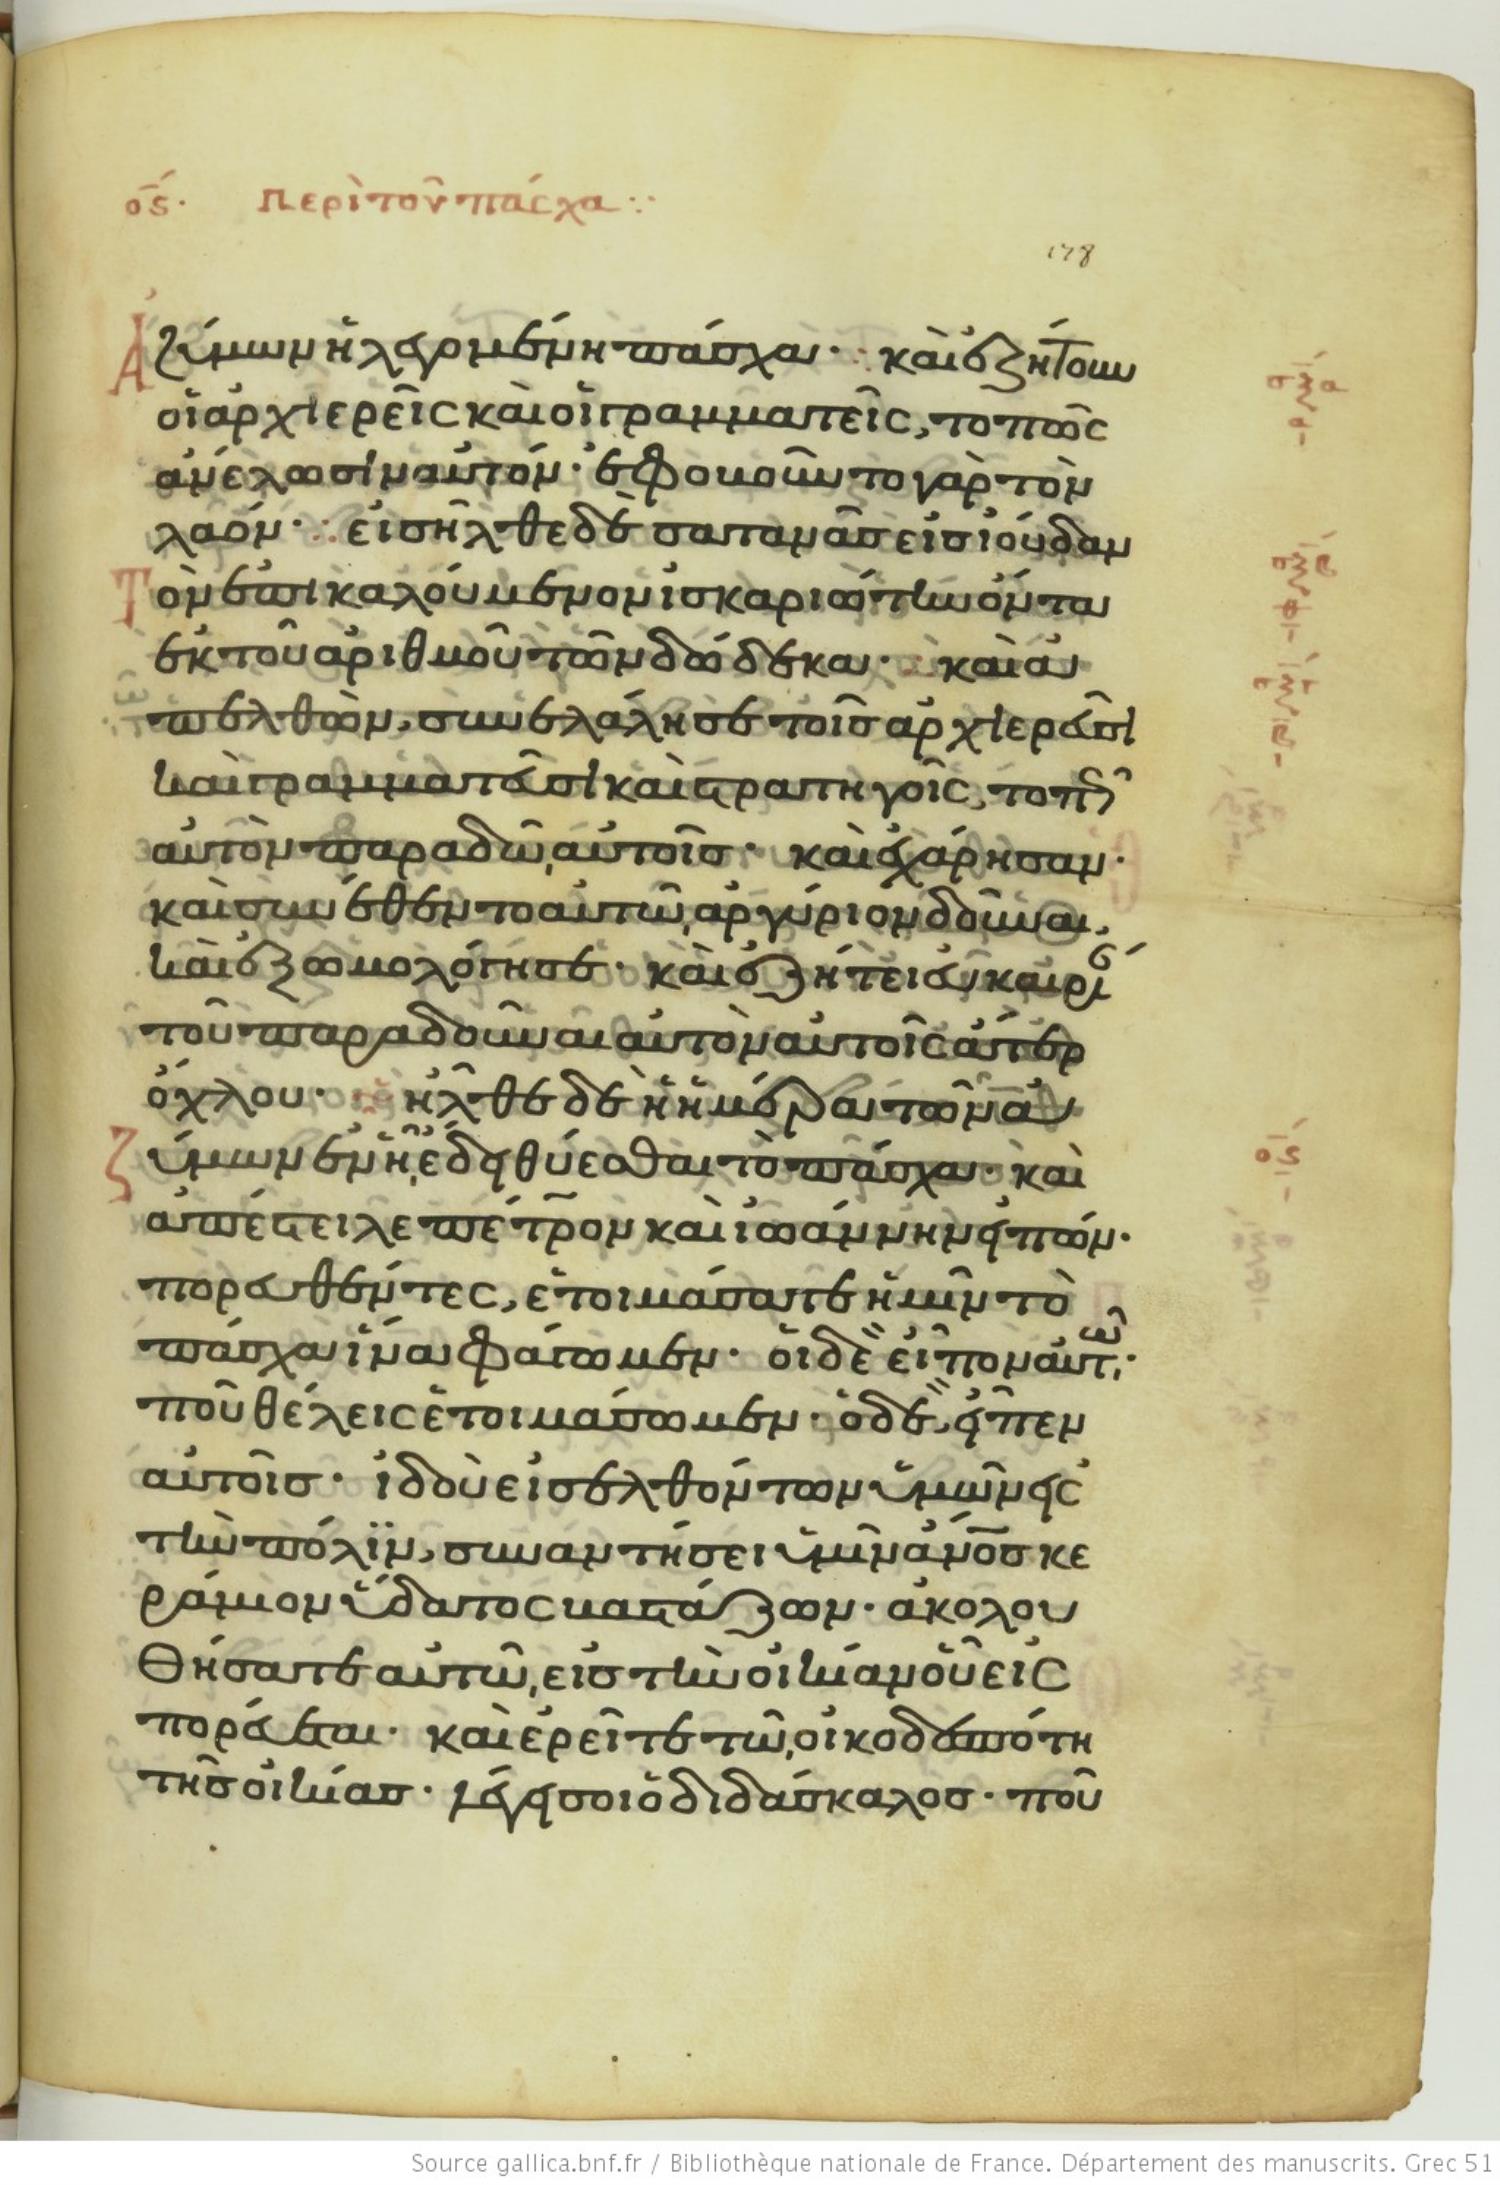 ος· Περὶ τοῦ πάσχα ⁘
178
Ἀζύμων ἡ λεγομένη πάσχα· καὶ ἐζήτουν
οἱ ἀρχιερεῖς καὶ οἱ γραμματεῖς, το πῶς
ἀνέλωσιν αὐτόν· ἐφοβοῦντο γὰρ τὸν
λαόν· εἰσῆλθε δὲ σατανᾶς εἰς ἰούδαν
Τὸν ἐπικαλούμενον ἰσκαριώτην ὄντα
ἐκ τοῦ ἀριθμοῦ τῶν δώδεκα· καὶ ἀ
πελθὼν, συνελάλησε τοῖς ἀρχιερεῦσι
καὶ γραμματεῦσι καὶ στρατηγοῖς, το πῶς
αὐτὸν παραδῶ αὐτοῖς· καὶ ἐχάρησαν·
καὶ συνέθεντο αὐτῶ ἀργύριον δοῦναι,
καὶ ἐξωμολόγησε· καὶ ἐζήτει εὐκαιρί
τοῦ παραδοῦναι αὐτὸν αὐτοῖς ἄτερ
ὄχλου· ἦλθε δὲ ἡ ἡμέρα τῶν ἀ
ζύμων ἐν ἧ ἔδει θύεσθαι τὸ πάσχα· καὶ
ἀπέστειλε πέτρον καὶ ἰωάννην εἰπών·
πορευθέντες, ἑτοιμάσατε ἡμῖν τὸ
πάσχα ἵνα φάγωμεν· οἱ δὲ εἶπον αὐτῶ·
ποῦ θέλεις ἑτοιμάσωμεν· ὁ δὲ, εἶπεν
αὐτοῖς· ἰδοὺ εἰσελθόντων ὑμῶν εἰς
τὴν πόλϊν, συναντήσει ὑμῖν ἄνος κε
ράμιον ὕδατος βαστάζων· ἀκολου
Θήσατε αὐτῶ εἰς τὴν οἰκίαν οὗ εἰς
πορεύεται· καὶ ἐρεῖτε τῶ οἰκοδεσπότη
τῆς οἰκίας· λέγει σοι ὁ διδάσκαλος· ποῦ
ος
Source gallica.bnf.fr / Bibliothèque nationale de France. Département des manuscrits. Grec 51